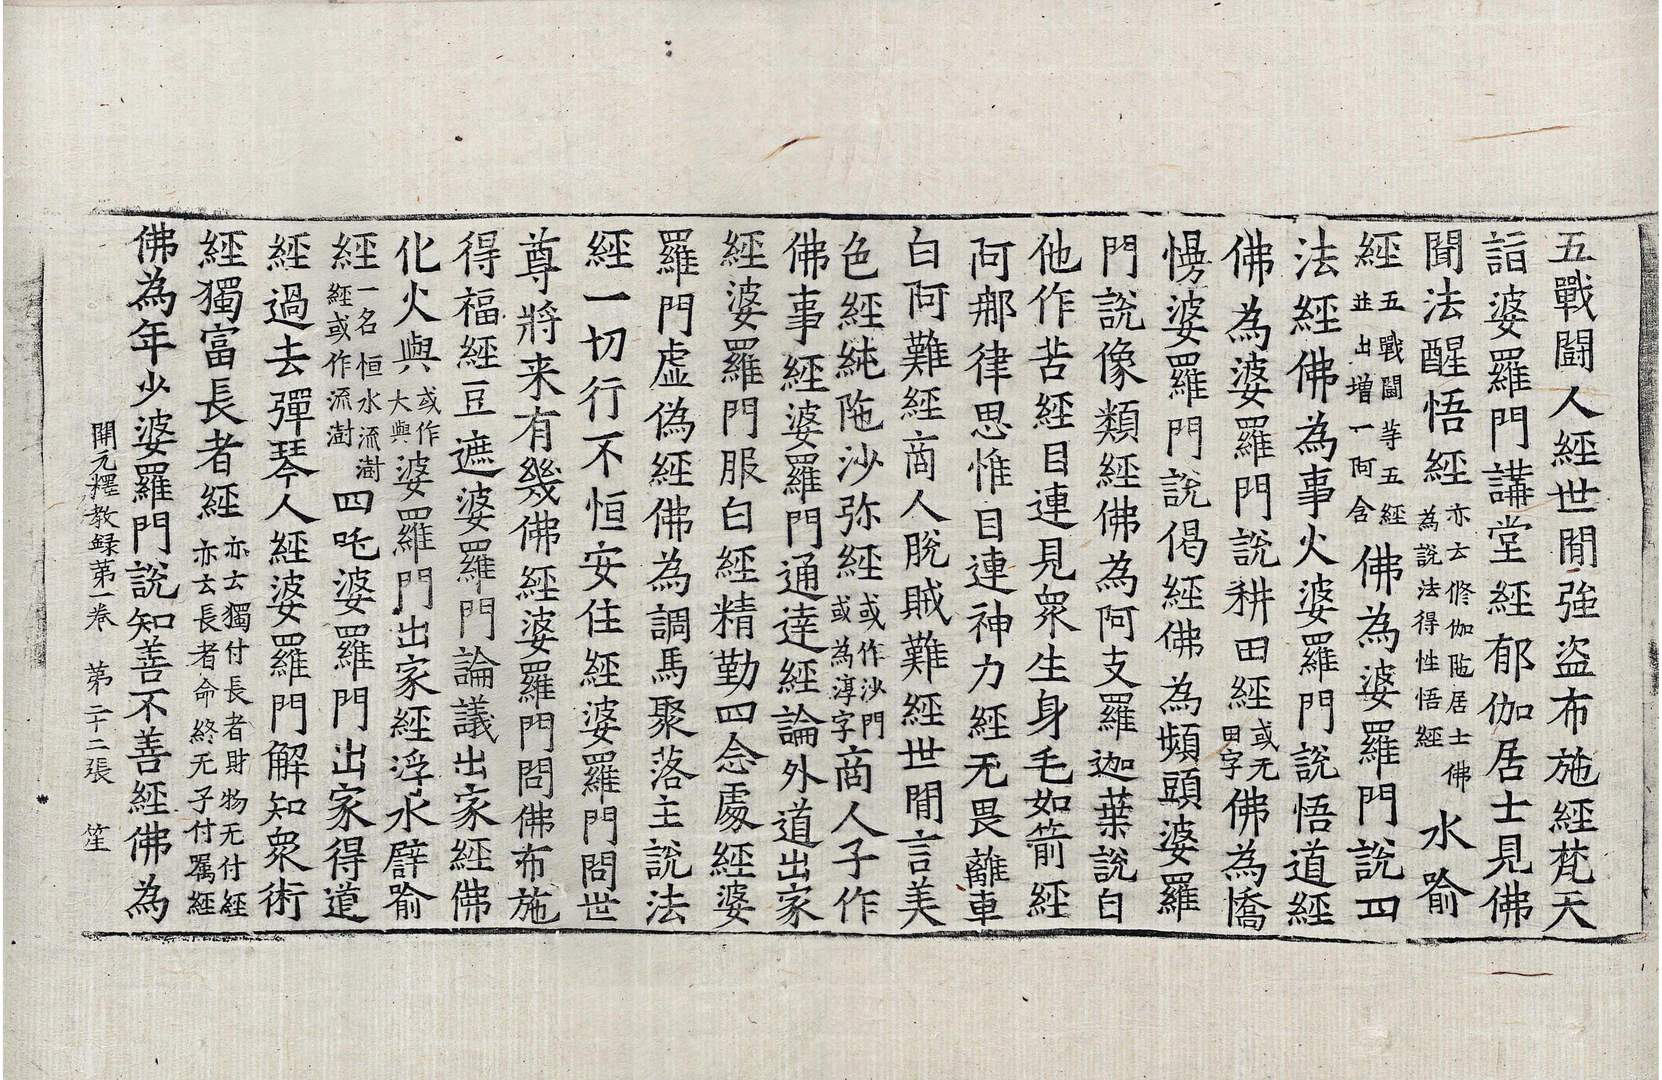 五戰鬪人經世閒強盗布施經梵天
詣婆羅門講堂經郁伽居士見佛
聞法醒悟經亦云修伽陁居士佛為說法得性悟經水喻
經五戰鬪等五經並出增一阿含佛為婆羅門說四
法經佛為事火婆羅門說悟道經
佛為婆羅門說耕田經或无田字佛為憍
慢婆羅門說偈經佛為頻頭婆羅
門說像類經佛為阿支羅迦葉說自
他作苦經目連見衆生身毛如箭經
阿那律思惟目連神力經无畏離車
白阿難經商人脫賊難經世閒言美
色經純陁沙弥經或作沙門或為淳字商人子作
佛事經婆羅門通達經論外道出家
經婆羅門服白經精勤四念處經婆
羅門虛偽經佛為調馬聚落主說法
經一切行不恒安住經婆羅門問世
尊將来有幾佛經婆羅門問佛布施
得福經豆遮婆羅門論議出家經佛
化火與或作大與婆羅門出家經浮水譬喻
經一名恒水流澍經或作流澍四吒婆羅門出家得道
經過去彈琴人經婆羅門解知衆術
經獨富長者經亦云獨付長者財物无付經亦云長者命終无子付囑經
佛為年少婆羅門說知善不善經佛為
開元釋教録第一卷　第二十二張　笙